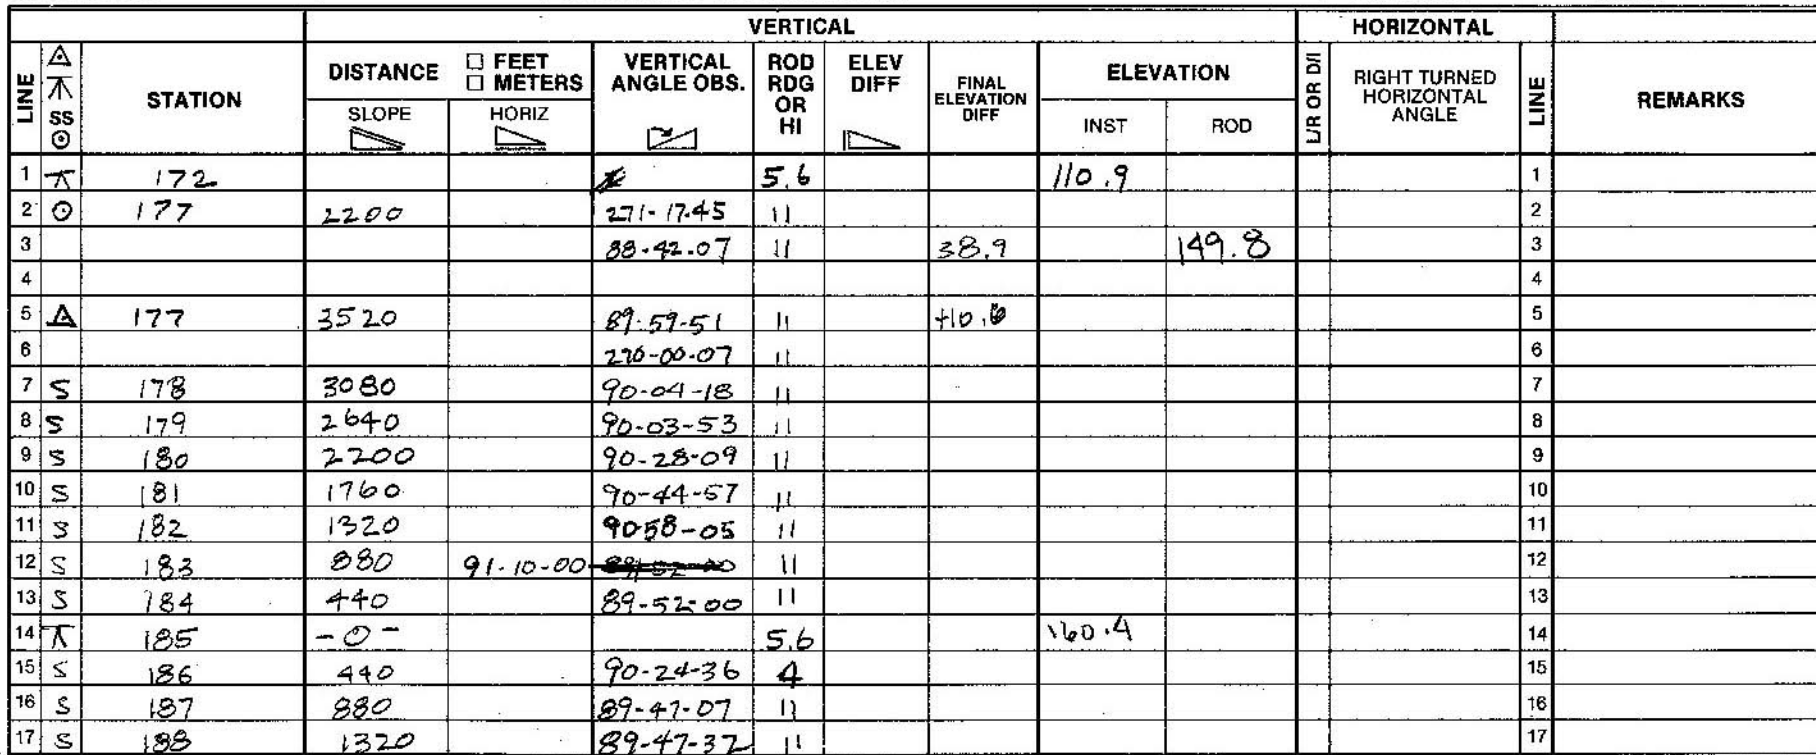 VERTICAL HORIZONTAL
LINE SS STATION DISTANCE □ FEET □ METERS VERTICAL ANGLE OBS. ROD RDG OR HI ELEV DIFF FINAL ELEVATION DIFF ELEVATION L/R OR D/I RIGHT TURNED HORIZONTAL ANGLE LINE REMARKS
SLOPE HORIZ INST ROD
1 172 5.6 110.9 1
2 177 2200 271-17-45 11 2
3 88-42-07 11 38.9 149.8 3
4 4
5 177 3520 89-59-51 11 5
6 270-00-07 11 6
7 S 178 3080 90-04-18 11 7
8 S 179 2640 90-03-53 11 8
9 S 180 2200 90-28-09 11 9
10 S 181 1760 90-44-57 11 10
11 S 182 1320 90-58-05 11 11
12 S 183 880 91-10-00 11 12
13 S 184 440 89-52-00 11 13
14 185 -0- 5.6 160.4 14
15 S 186 440 90-24-36 4 15
16 S 187 880 89-47-07 11 16
17 S 188 1320 89-47-32 11 17